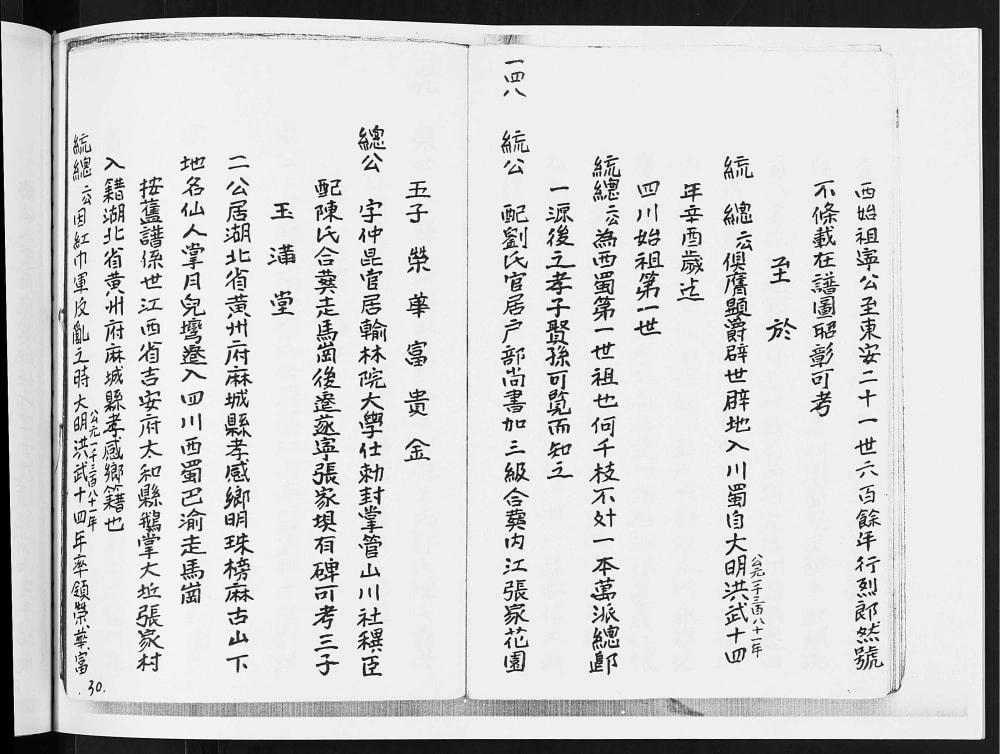 西始祖寧公至東安二十一世六百餘年行烈郎然號
不條載在譜圖昭彰可考
至於
統 總 二公俱膺顯爵辟世辟地入川蜀自大明洪武十四
公元一千三百八十一年
年辛酉歲迄
四川始祖第一世
統總二公為西蜀第一世祖也何千枝不外一本萬派總歸
一源後之孝子賢孫可覽而知之
一四八 統公 配劉氏官居户部尚書加三級合葬内江張家花園
五子榮華富貴金
總公 字仲昆官居翰林院大學仕勅封掌管山川社稷臣
配陳氏合葬走馬崗後遷遂寧張家埧有碑可考三子
玉滿堂
二公居湖北省黄州府麻城縣孝感鄉明珠榜麻古山下
地名仙人掌月兒塆遷入四川西蜀巴渝走馬崗
按舊譜係世江西省吉安府太和縣鵝掌大坵張家村
入籍湖北省黄州府麻城縣孝感鄉籍也
公元一千三百八十一年
統總二公因紅巾軍反亂之時大明洪武十四年率領榮華富
30.